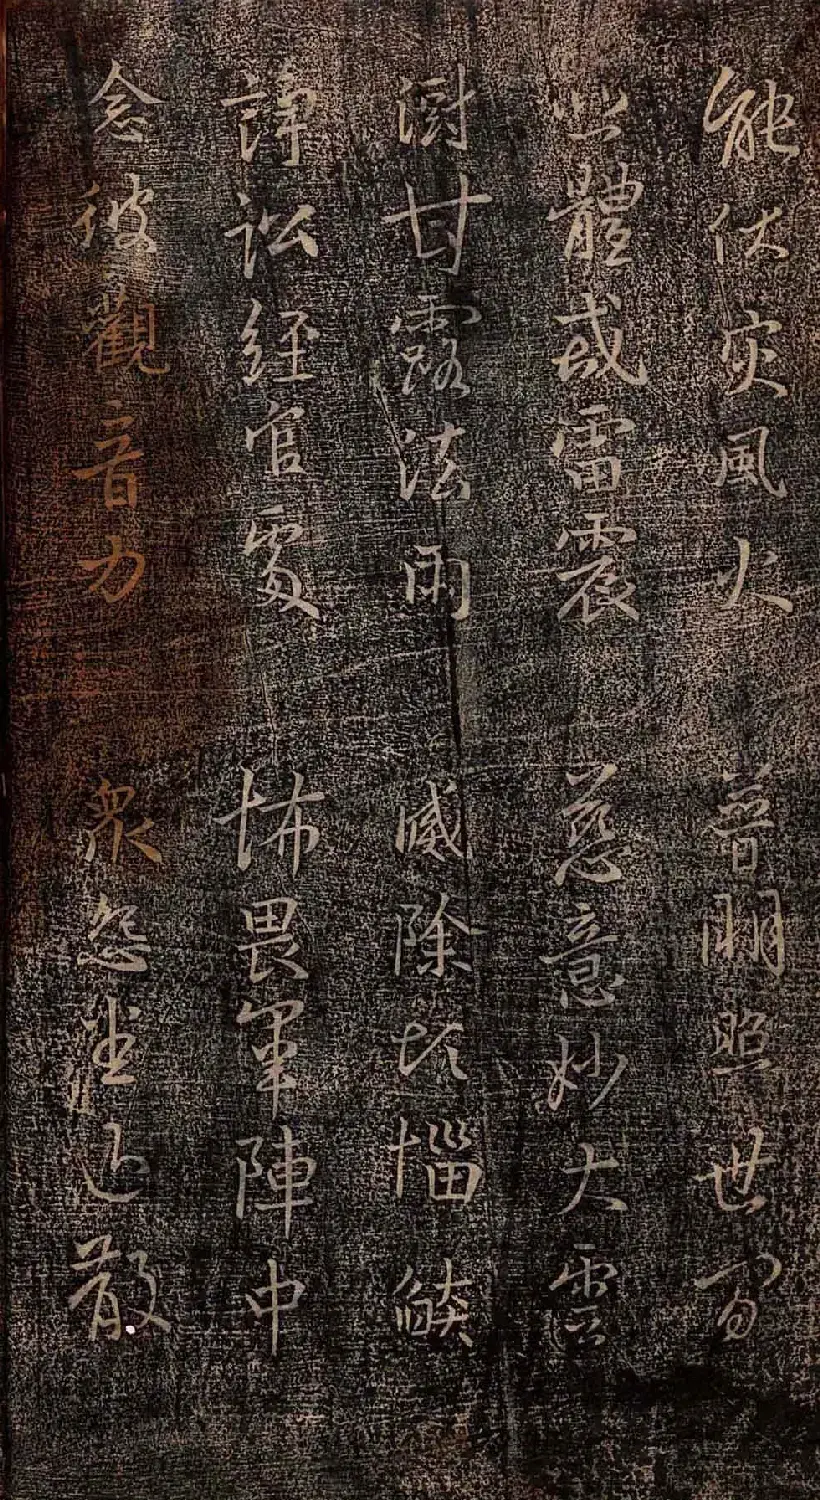 能伏灾風火 普明照世間
悲體戒雷震 慈意妙大雲
澍甘露法雨 滅除煩惱焰
諍訟經官處 怖畏軍陣中
念彼觀音力 衆怨悉退散